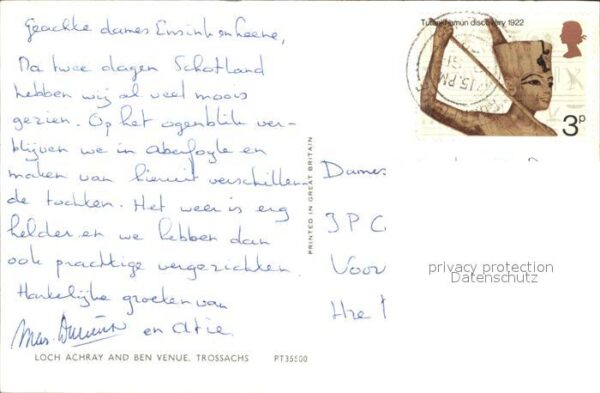 Geachte dames Ensink en Leene,
Na twee dagen Schotland
hebben wij al veel moois
gezien. Op het ogenblik ver-
blijven we in Aberfoyle en
maken van hieruit verschillen-
de tochten. Het weer is erg
helder en we hebben dan
ook prachtige vergezichten.
Hartelijke groeten van
en Atie.
LOCH ACHRAY AND BEN VENUE, TROSSACHS PT35500
PRINTED IN GREAT BRITAIN
Tutankhamun discovery 1922
3p
15 PM
Dames
3 P C
Voor
privacy protection
Datenschutz